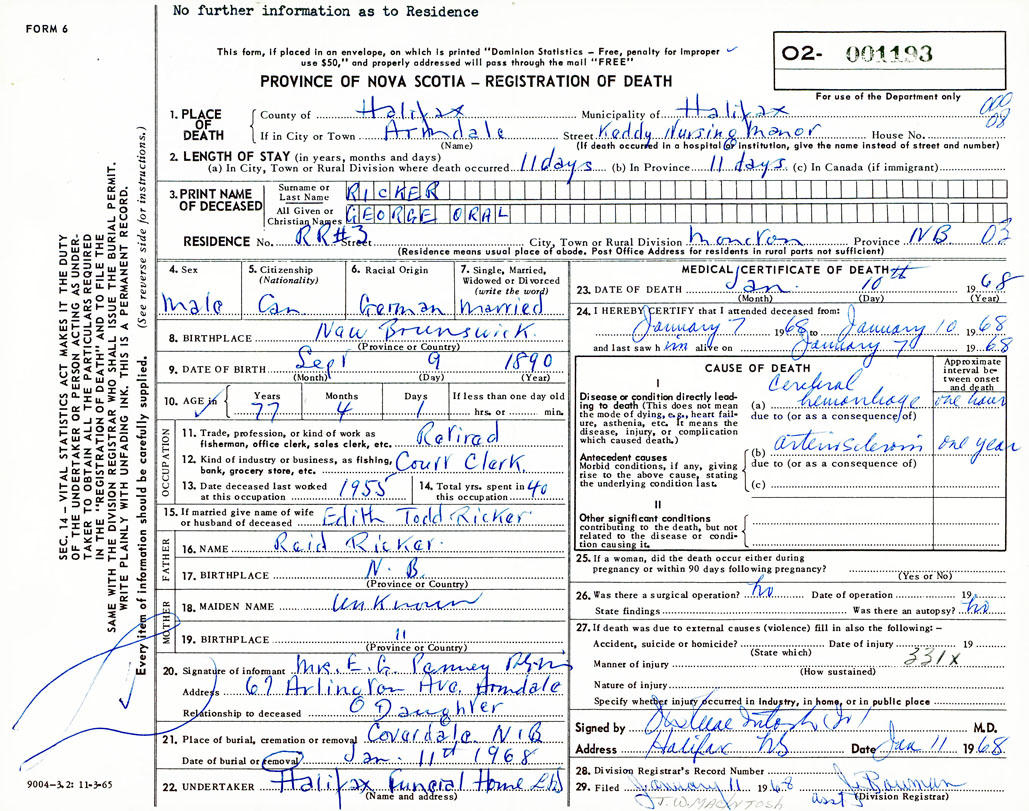 No further information as to Residence
FORM 6
This form, if placed in an envelope, on which is printed "Dominion Statistics – Free, penalty for improper
use $50," and properly addressed will pass through the mail "FREE"
O2- 001193
For use of the Department only
PROVINCE OF NOVA SCOTIA – REGISTRATION OF DEATH
1. PLACE OF DEATH
County of Halifax Municipality of Halifax
If in City or Town Armdale Street Keddy Nursing Manor House No.
(Name) (If death occurred in a hospital or institution, give the name instead of street and number)
08
2. LENGTH OF STAY (in years, months and days)
(a) In City, Town or Rural Division where death occurred 11 days (b) In Province 11 days (c) In Canada (if immigrant)
3. PRINT NAME OF DECEASED
Surname or Last Name RICKER
All Given or Christian Names GEORGE ORAL
RESIDENCE No. RR#3 Street City, Town or Rural Division Moncton Province NB 03
(Residence means usual place of abode. Post Office Address for residents in rural parts not sufficient)
4. Sex
Male
5. Citizenship
(Nationality)
Can
6. Racial Origin
German
7. Single, Married,
Widowed or Divorced
(write the word)
Married
8. BIRTHPLACE New Brunswick
(Province or Country)
9. DATE OF BIRTH Sept 9 1890
(Month) (Day) (Year)
10. AGE in Years Months Days If less than one day old
77 4 1 hrs. or min.
OCCUPATION
11. Trade, profession, or kind of work as
fisherman, office clerk, sales clerk, etc. Retired
12. Kind of industry or business, as fishing,
bank, grocery store, etc. Court Clerk
13. Date deceased last worked
at this occupation 1955
14. Total yrs. spent in
this occupation 40
15. If married give name of wife
or husband of deceased Edith Todd Ricker
FATHER
16. NAME Reid Ricker
17. BIRTHPLACE N.B.
(Province or Country)
MOTHER
18. MAIDEN NAME Unknown
19. BIRTHPLACE "
(Province or Country)
20. Signature of informant Mrs. E. G.
Address 67 Arlington Ave. Armdale
Relationship to deceased Daughter
21. Place of burial, cremation or removal Coverdale N.B
Date of burial or removal Jan. 11th 1968
22. UNDERTAKER Halifax Funeral Home Ltd
(Name and address)
MEDICAL CERTIFICATE OF DEATH
23. DATE OF DEATH Jan. 10th 1968
(Month) (Day) (Year)
24. I HEREBY CERTIFY that I attended deceased from:
January 7 1968 to January 10 1968
and last saw him alive on January 7 1968
CAUSE OF DEATH
Approximate interval between onset and death
I
Disease or condition directly leading to death (This does not mean the mode of dying, e.g., heart failure, asthenia, etc. It means the disease, injury, or complication which caused death.)
(a) Cerebral hemorrhage one hour
due to (or as a consequence of)
Antecedent causes
Morbid conditions, if any, giving rise to the above cause, stating the underlying condition last.
(b) arteriosclerosis one year
due to (or as a consequence of)
(c)
II
Other significant conditions
contributing to the death, but not related to the disease or condition causing it.
25. If a woman, did the death occur either during
pregnancy or within 90 days following pregnancy?
(Yes or No)
26. Was there a surgical operation? no Date of operation 19
State findings Was there an autopsy? no
27. If death was due to external causes (violence) fill in also the following: –
Accident, suicide or homicide? Date of injury 19
(State which)
331X
Manner of injury
(How sustained)
Nature of injury
Specify whether injury occurred in industry, in home, or in public place
Signed by M.D.
Address Halifax NS Date Jan 11 1968
28. Division Registrar's Record Number
29. Filed January 11 1968 J. Bowman
asst (Division Registrar)
J. W. MACINTOSH
SEC. 14 – VITAL STATISTICS ACT MAKES IT THE DUTY
OF THE UNDERTAKER OR PERSON ACTING AS UNDER-
TAKER TO OBTAIN ALL THE PARTICULARS REQUIRED
IN THE "REGISTRATION OF DEATH" AND TO FILE THE
SAME WITH THE DIVISION REGISTRAR WHO SHALL ISSUE THE BURIAL PERMIT.
WRITE PLAINLY WITH UNFADING INK. THIS IS A PERMANENT RECORD.
Every item of information should be carefully supplied. (See reverse side for instructions.)
9004-3.2: 11-3-65